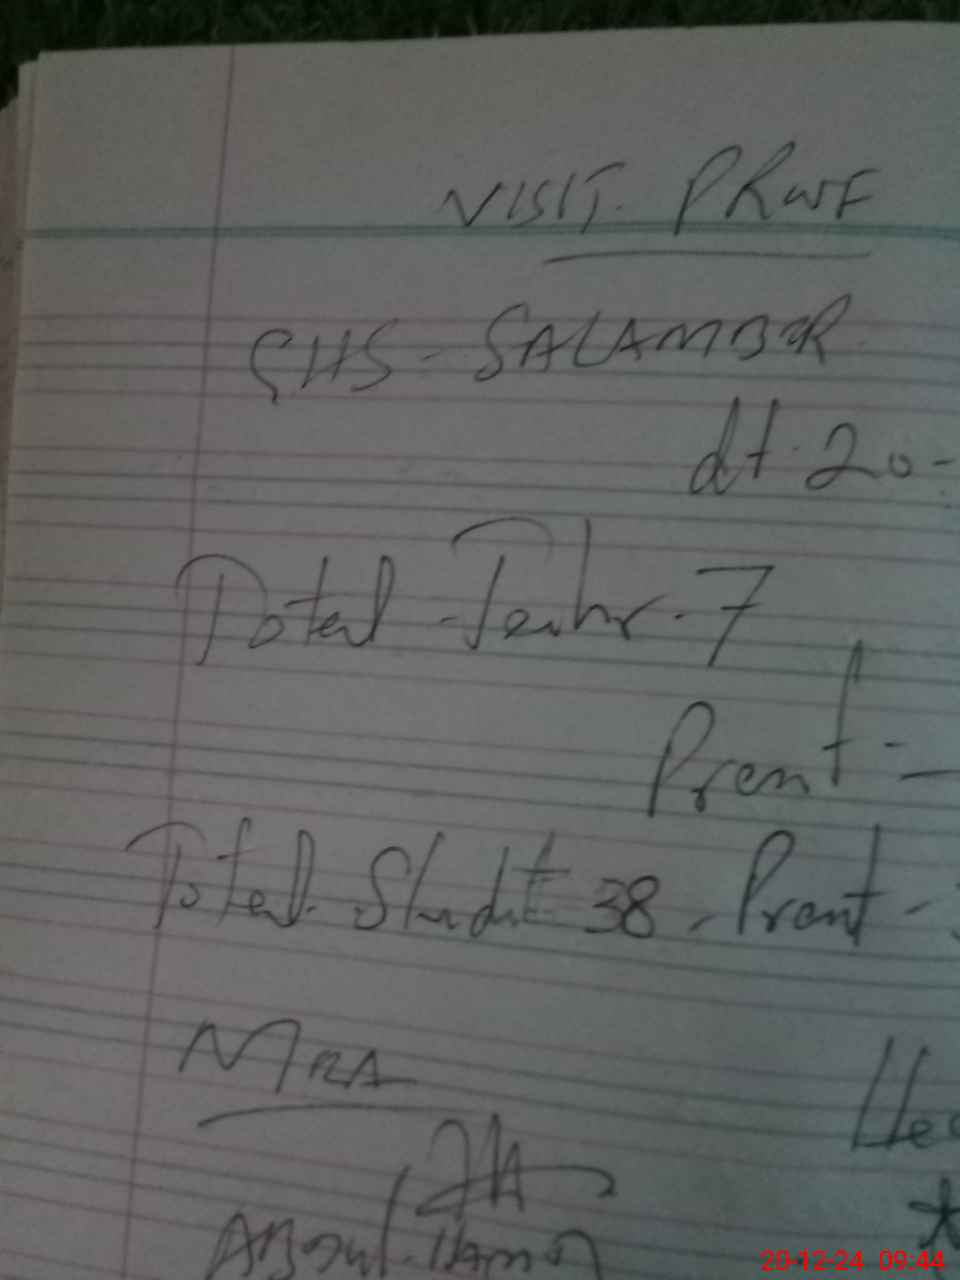 VISIT. PRWF
GHS - SALAMBOR
dt. 20-
Total - Teachr. 7
Prent -
Total. Studt 38 - Prent -
MRA
Hea
Abdul.
20-12-24 09:44